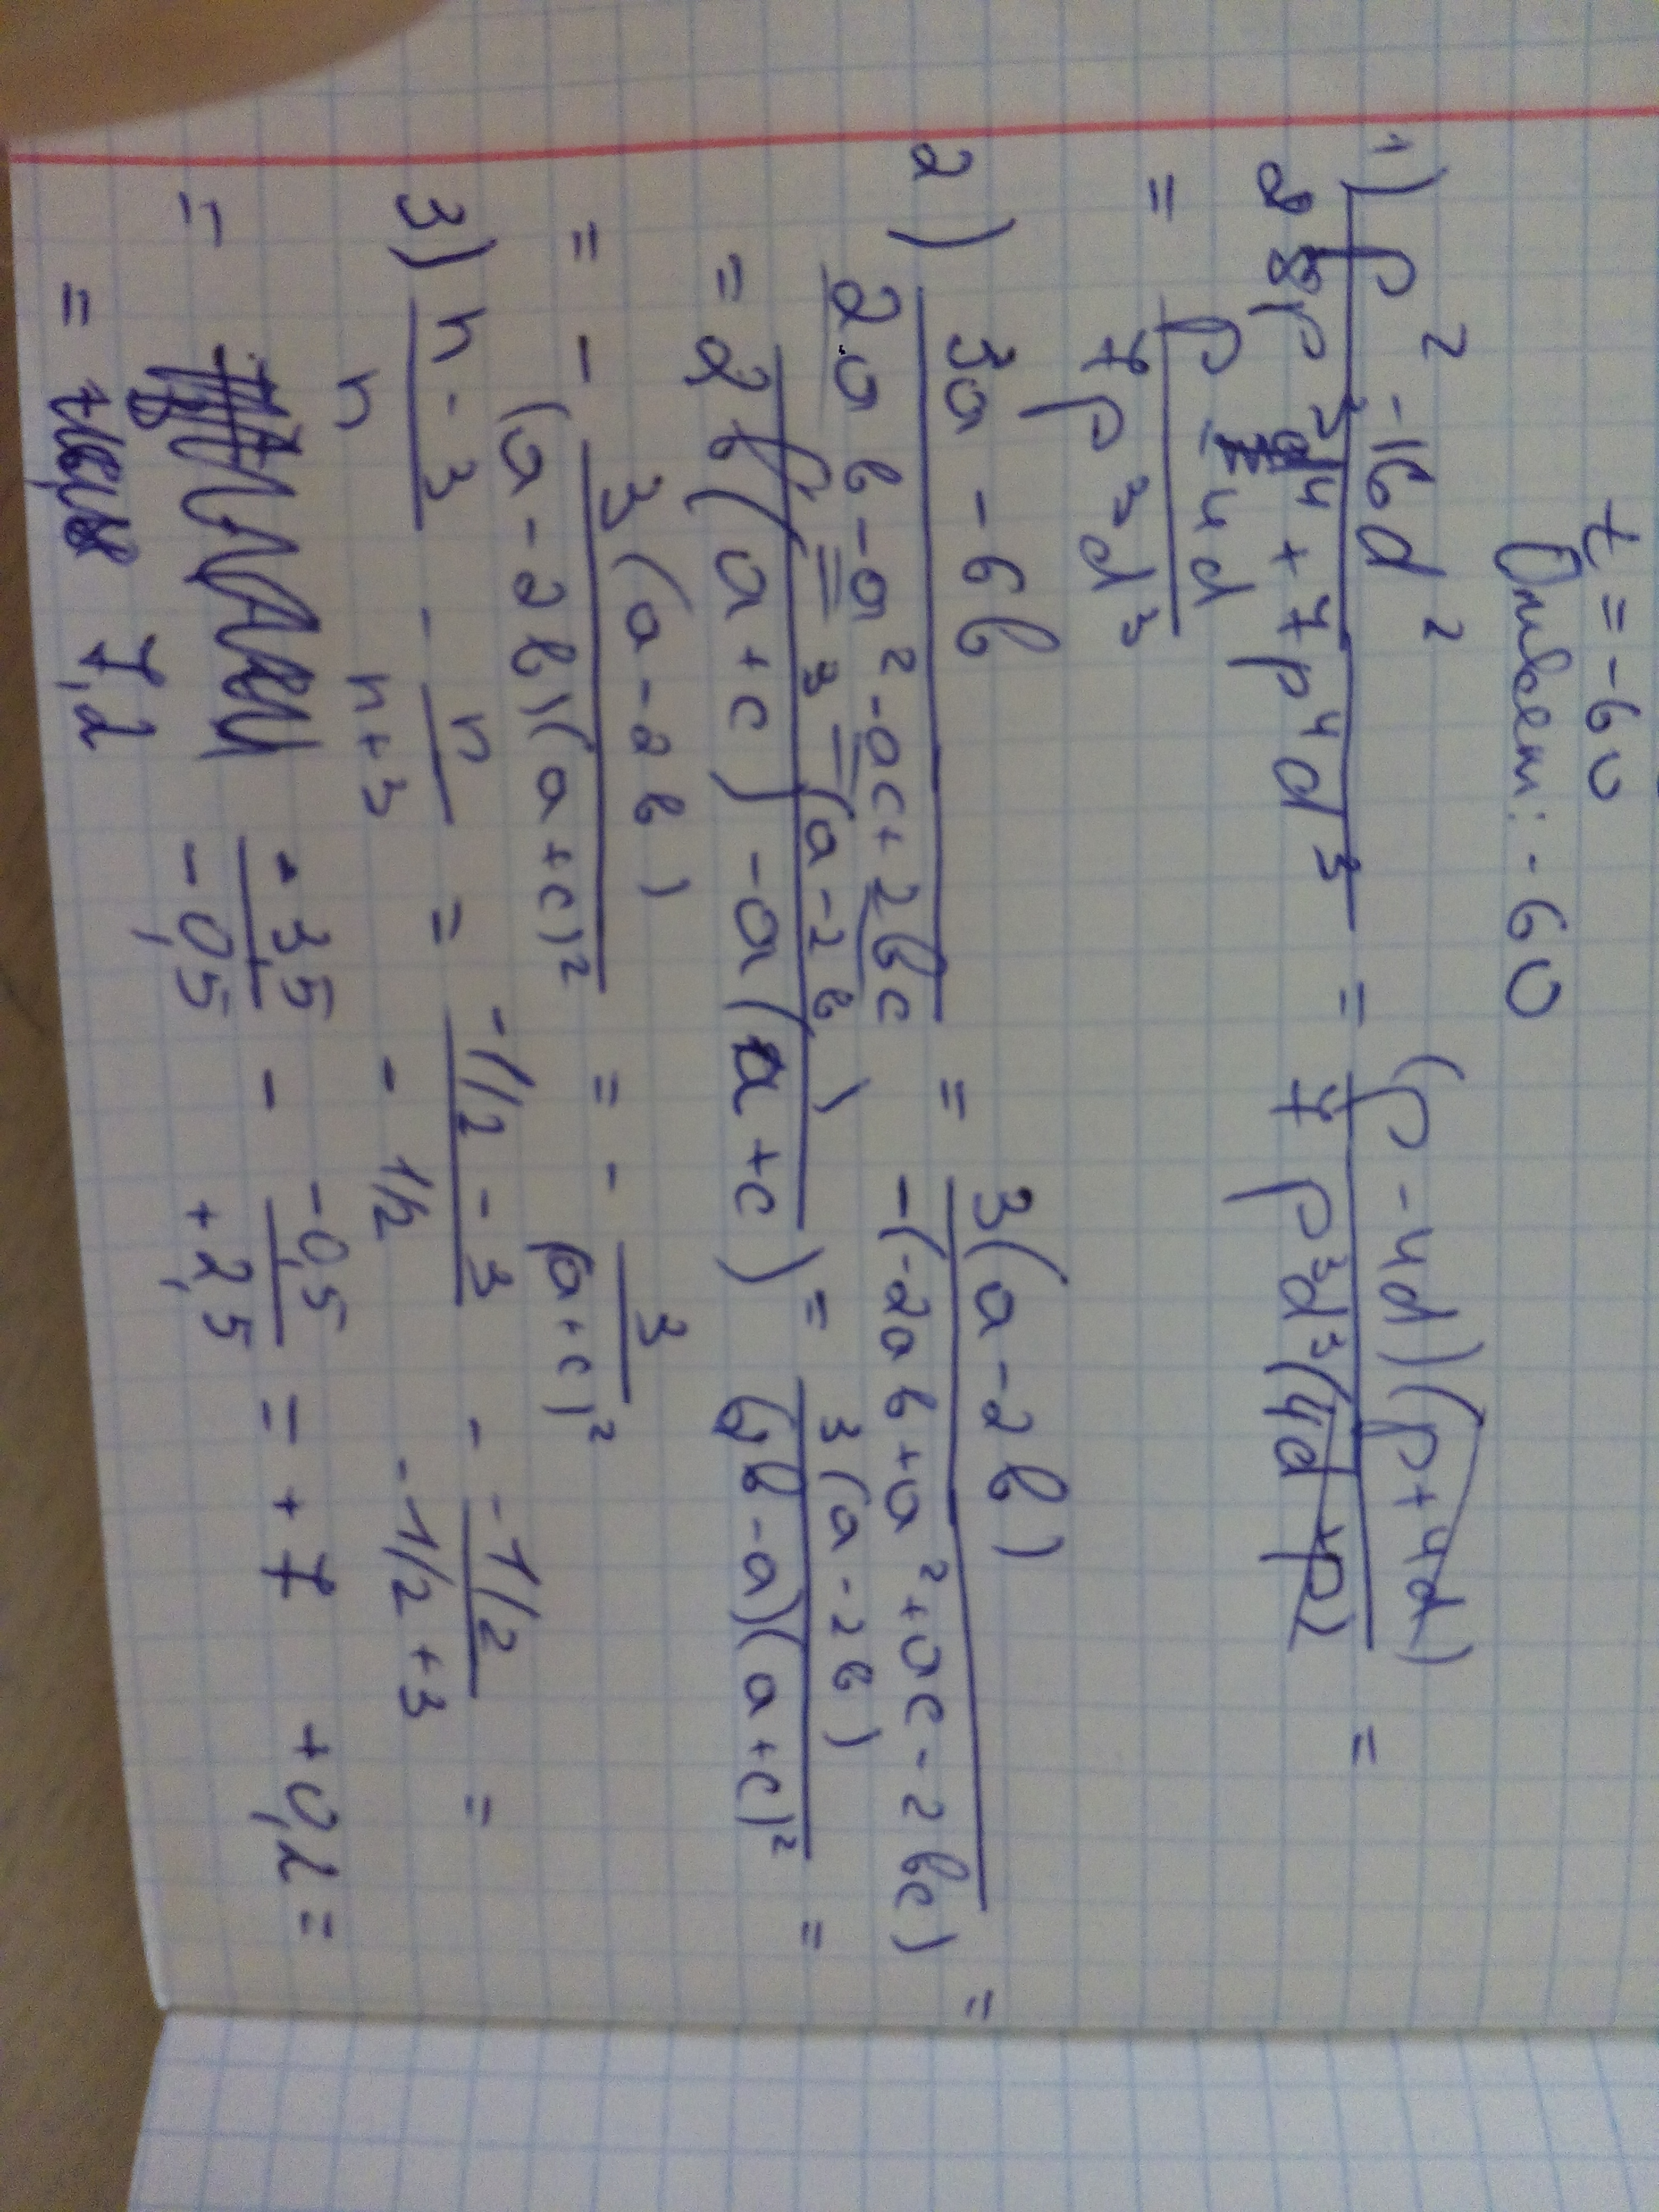 t = -60
Ответ: -60
1) (p² - 16d²)/(28p³d⁴ + 7p⁴d³) = ((p - 4d)(p + 4d))/(7p³d³(4d + p)) =
= (p - 4d)/(7p³d³)
2) (3a - 6b)/(2ab - a² - ac + 2bc) = (3(a - 2b))/(-(-2ab + a² + ac - 2bc)) =
= (3(a - 2b))/(2b(a + c) - a(a + c)) = (3(a - 2b))/((2b - a)(a + c)²) =
= - (3(a - 2b))/((a - 2b)(a + c)²) = - 3/(a + c)²
3) (n - 3)/n - n/(n + 3) = (-1/2 - 3)/(-1/2) - (-1/2)/(-1/2 + 3) =
= (-3,5)/(-0,5) - (-0,5)/(+2,5) = + 7 + 0,2 =
= 7,2